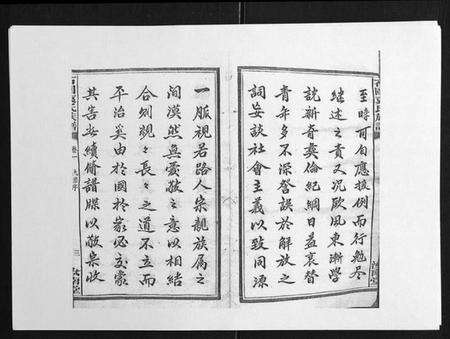 至時可自應援例而行勉尽
继述之責又况歐風東漸學
説新奇倫紀綱日益衰替
青年多不深誤於解放之
詞妄談社會主義以致同源
一脈視若路人宗親族属之
间漠然無愛敬之意以相結
合則親々長々之道不立而
平治奚由於國於家必交蒙
其害續脩譜牒以敬宗收
卷一
序
三